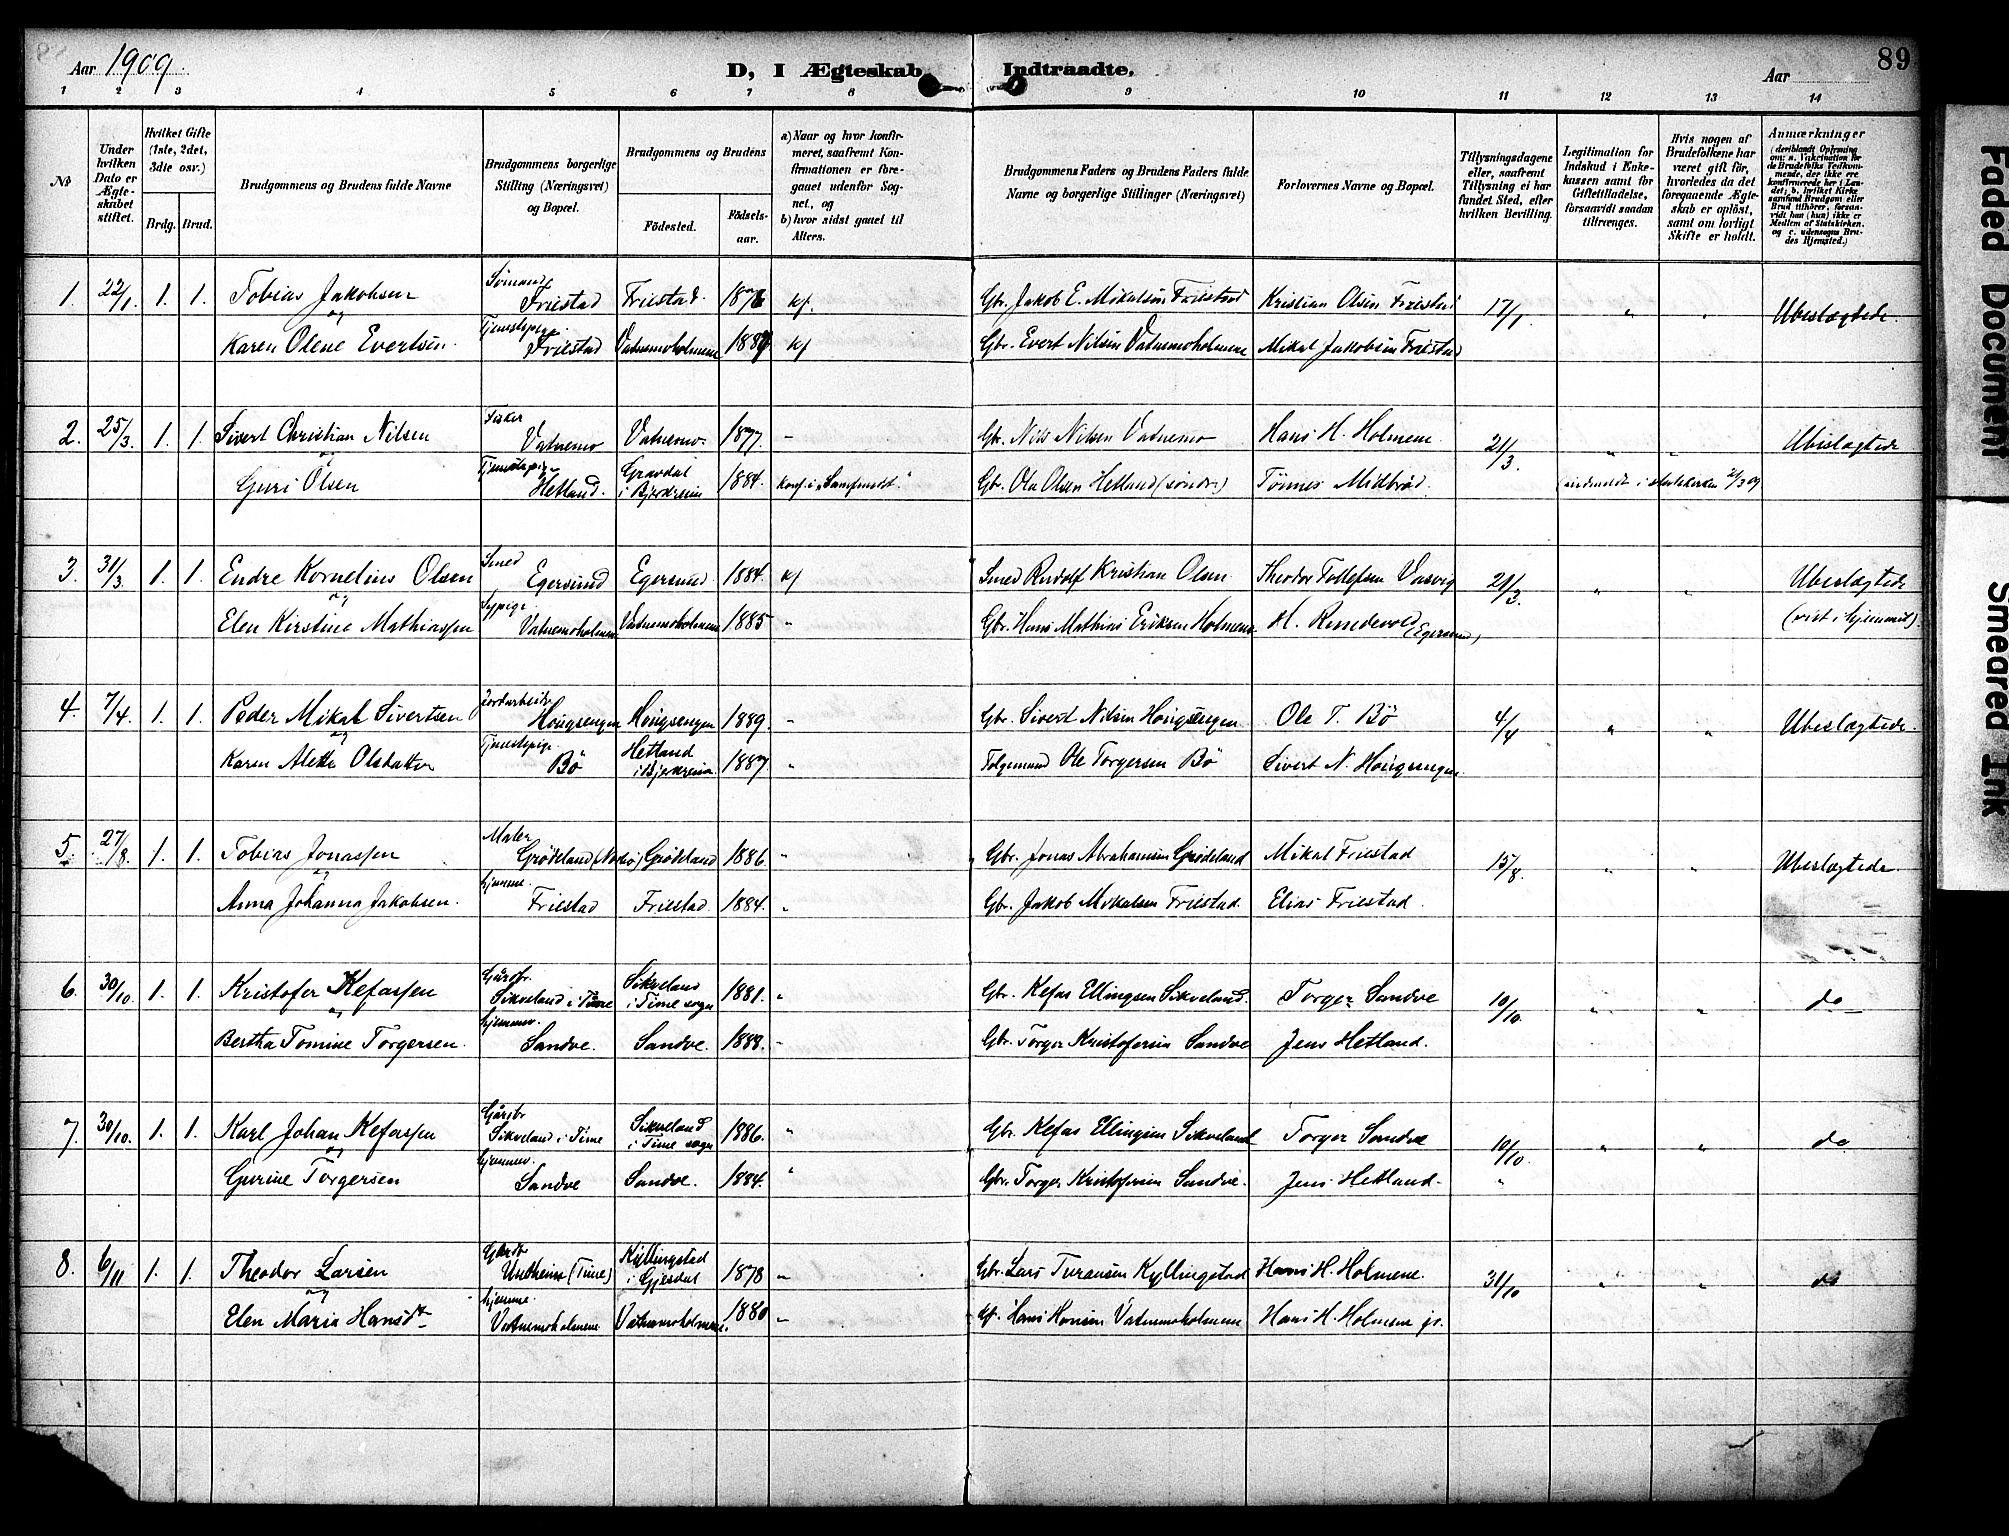 Aar 1909.
D, I Ægteskab Indtraadte.
Aar
89
1 2 3 4 5 6 7 8 9 10 11 12 13 14
№
Under hvilken Dato er Ægteskabet stiftet.
Hvilket Gifte (1ste, 2det, 3dte osv.)
Brdg. Brud.
Brudgommens og Brudens fulde Navne
Brudgommens borgerlige Stilling (Næringsvei) og Bopæl.
Brudgommens og Brudens
Födested.
Födselsaar.
a) Naar og hvor konfirmeret, saafremt Konfirmationen er foregaaet udenfor Sognet, og
b) hvor sidst gaaet til Alters.
Brudgommens Faders og Brudens Faders fulde Navne og borgerlige Stillinger (Næringsvei)
Forlovernes Navne og Bopæl.
Tillysningsdagene eller, saafremt Tillysning ei har fundet Sted, efter hvilken Bevilling.
Legitimation for Indskud i Enkekassen samt for Giftetilladelse, forsaavidt saadan tiltrænges.
Hvis nogen af Brudefolkene har været gift før, hvorledes da det foregaaende Ægteskab er opløst, samt om lovligt Skifte er holdt.
Anmærkninger (deriblandt Oplysning om: a. Vaccination for de Brudefolks Vedkommende, der ikke ere konfirmerede her i Landet; b. hvilket Kirkesamfund Brudgom eller Brud tilhörer, forsavidt han (hun) ikke er Medlem af Statskirken, og c. udensogns Brudes Hjemsted.)
1. 22/1. 1. 1. Tobias Jakobsen Sømand Friestad Friestad. 1876 kf. Gbr. Jakob E. Mikalsen Friestad Kristian Olsen Friestad 17/1. " " Ubeslægtede.
og
Karen Olene Evertsen. Tjenestepige Friestad Vatnemoholmene 1889 kf Gbr. Evert Nilsen Vatnemoholmene Mikal Jakobsen Friestad
2. 25/3. 1. 1. Sivert Christian Nilsen Fisker Vatnemo Vatnemo. 1877. - Gbr. Nils Nilsen Vatnemo Hans H. Holmene 21/3. " " Ubeslægtede
og
Guri Olsen Tjenestepige Hetland. Gravdal i Bjerkreim 1884. Konf. i "Samfundet." Gbr. Ola Olsen Hetland (søndre) Tønnes Midbrød. (indmeldt i statskirken 21/3 09
3. 31/3. 1. 1. Endre Kornelius Olsen Smed Egersund Egersund 1884. kf Smed Rudolf Kristian Olsen Theodor Tollefsen Vasvig 21/3. " " Ubeslægtede
og
Elen Kirstine Mathiassen Sypige Vatnemoholmene Vatnemoholmene 1885 " Gbr. Hans Mathias Eriksen Holmene H. (Egersund) (viet i hjemmet).
4. 7/4. 1. 1. Peder Mikal Sivertsen Jordarbeider Hougsengen Hougsengen 1889. " Gbr. Sivert Nilsen Hougsengen Ole T. Bø 4/4 " " Ubeslægtede.
og
Karen Alette Olsdatter Tjenestepige Bø Hetland i Bjerkreim 1887. " Ole Torgersen Bø Sivert N. Hougsengen
5. 27/8. 1. 1. Tobias Jonassen Maler Grødeland (Nærbø) Grødeland 1886. " Gbr. Jonas Abrahamsen Grødeland Mikal Friestad 15/8. " " Ubeslægtede.
og
Anna Johanna Jakobsen. hjemme. Friestad Friestad. 1884. " Gbr. Jakob Mikalsen Friestad. Elias Friestad.
6. 30/10. 1. 1. Kristofer Kefassen Gårdbr. Sikveland i Time Sikveland i Time sogn 1881. " Gbr. Kefas Ellingsen Sikveland. Torger Sandve 10/10. " " do
og
Bertha Tomine Torgersen. hjemmev. Sandve. Sandve. 1888. " Gbr. Torger Kristofersen Sandve Jens Hetland.
7. 30/10. 1. 1. Karl Johan Kefassen Gårdbr Sikveland i Time Sikveland i Time sogn 1886. " Gbr. Kefas Ellingsen Sikveland Torger Sandve 10/10. " " do
og
Gurine Torgersen hjemmev. Sandve Sandve. 1884. " Gbr. Torger Kristofersen Sandve. Jens Hetland. "
8. 6/11 1. 1. Theodor Larsen Gårdbr Undheim (Time) Kyllingstad i Gjesdal 1878 " Gbr. Lars Kyllingstad Hans H. Holmene. 31/10 " " do
og
Elen Maria Hansdtr hjemme. Vatnemoholmene Vatnemoholmene. 1880 " Hans Hansen Vatnemoholmene Hans H. Holmene jr.
Faded Document
Smeared Ink